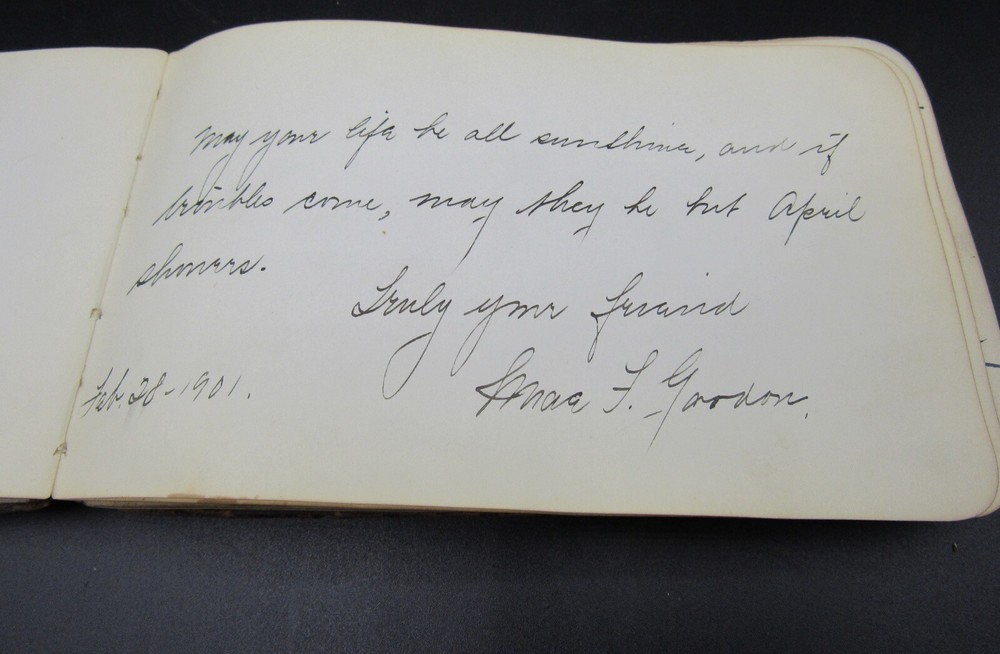 May your life be all sunshine, and if
troubles come, may they be but April
showers.
Truly your friend
F. Goodon.
Feb. 28-1901.